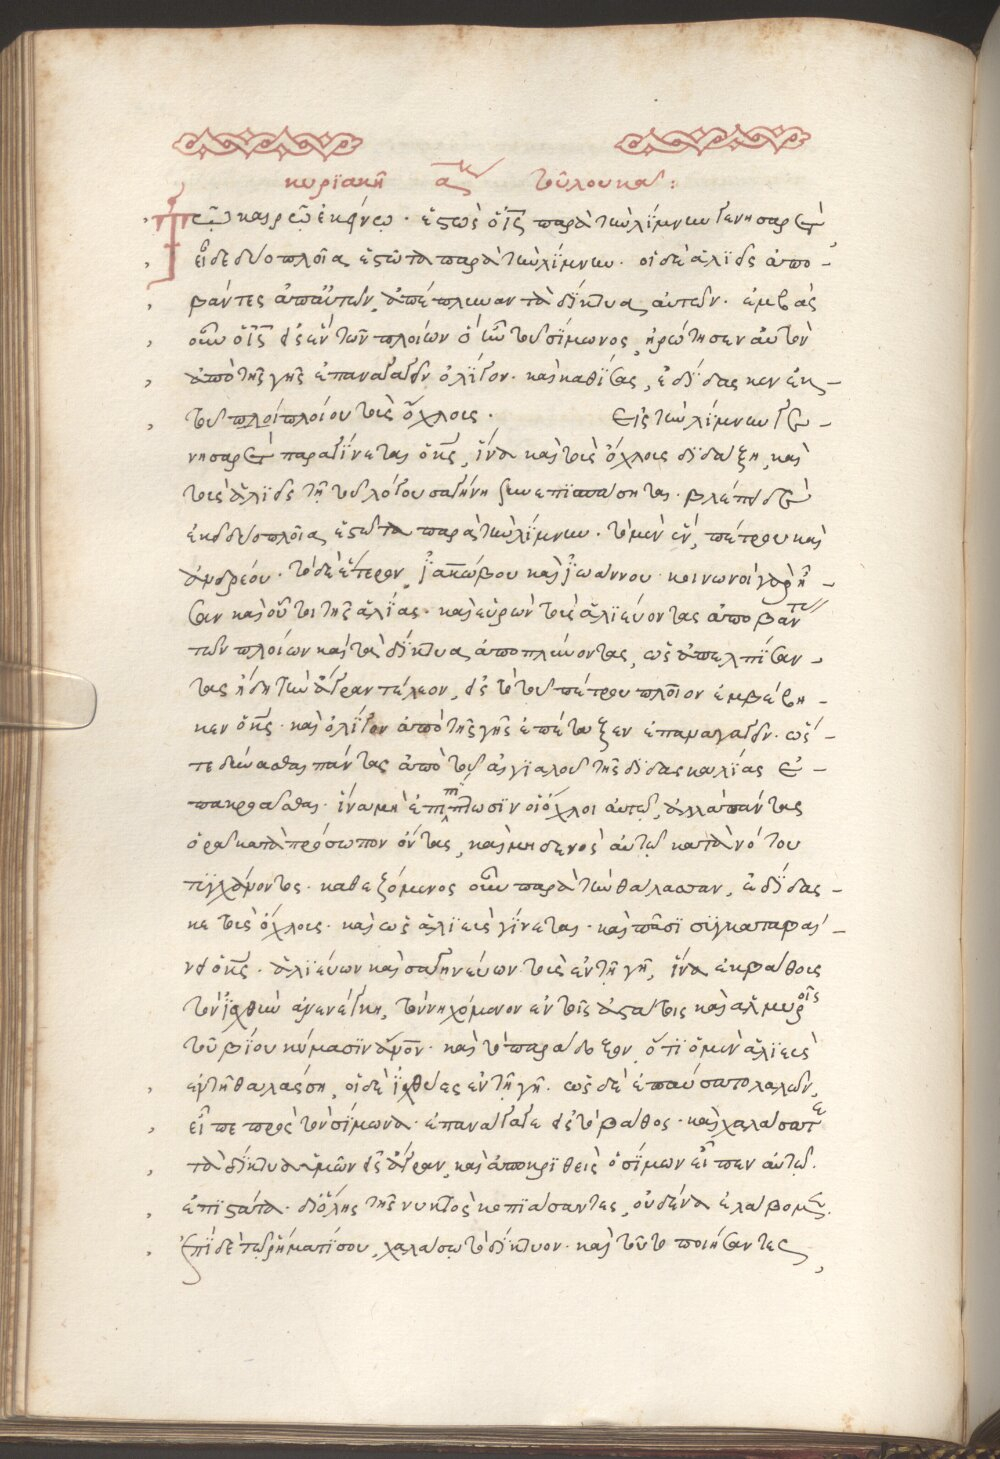 κυριακῆ α΄ τοῦ λουκᾶ :
Τῶ καιρῶ ἐκείνω · ἑστὼς ὁ ἰς παρὰ τὴν λίμνην γενησαρὲτ
εἶδε δύο πλοῖα ἑστῶτα παρὰ τὴν λίμνην · οἱ δὲ ἁλιεῖς ἀπο-
βάντες ἀπ' αὐτῶν, ἀπέπλυναν τὰ δίκτυα αὐτῶν · ἐμβὰς
οὖν ὁ ἰς εἰς ἓν τῶν πλοίων ὃ ἦν τοῦ σίμωνος, ἠρώτησεν αὐτὸν
ἀπὸ τῆς γῆς ἐπαναγαγεῖν ὀλίγον · καὶ καθίσας, ἐδίδασκεν ἐκ
τοῦ πλοί πλοίου τοὺς ὄχλους · Εἰς τὴν λίμνην γε-
νησαρὲτ παραγίνεται ὁ κς, ἵνα καὶ τοὺς ὄχλους διδάξη, καὶ
τοὺς ἁλιεῖς τῆ τοῦ λόγου σαγήνη ζῶν ἐπισπάσηται · βλέπει δὲ
ἐκεῖ δύο πλοῖα ἑστῶτα παρὰ τὴν λίμνην · τὸ μὲν ἓν, πέτρου καὶ
ἀνδρέου · τὸ δὲ ἕτερον, ἰακώβου καὶ ἰωάννου · κοινωνοὶ γὰρ ἦ-
σαν καὶ οὗτοι τῆς ἁλίας · καὶ εὑρὼν τοὺς ἁλιεύοντας ἀποβάντας
τῶν πλοίων καὶ τὰ δίκτυα ἀποπλύνοντας, ὡς ἀπελπίσαν-
τας ἤδη τὴν ἄγραν τέλεον, εἰς τὸ τοῦ πέτρου πλοῖον ἐμβέβη-
κεν ὁ κς · καὶ ὀλίγον ἀπὸ τῆς γῆς ἐπέταξεν ἐπαναγαγεῖν · ὥσ-
τε δύνασθαι πάντας ἀπὸ τοῦ αἰγιαλοῦ τῆς διδασκαλίας ἐ-
πακροᾶσθαι · ἵνα μὴ ἐμπίπτωσιν οἱ ὄχλοι αὐτῶ, ἀλλὰ πάντας
ὁρᾶ κατὰ πρόσωπον ὄντας, καὶ μηδενὸς αὐτῶ κατὰ νότου
τυγχάνοντος · καθεζόμενος οὖν παρὰ τὴν θάλασσαν, ἐδίδασ-
κε τοὺς ὄχλους · καὶ ὡς ἁλιεὺς γίνεται · καὶ πᾶσι συγκαταβαί-
νει ὁ κς · ἁλιεύων καὶ σαγηνεύων τοὺς ἐν τῆ γῆ, ἵνα ἐκ βάθους
τὸν ἰχθὺν ἀνενέγκη, τὸν νηχόμενον ἐν τοῖς ἀστάτοις καὶ ἁλμυροῖς
τοῦ βίου κύμασιν ἀνον · καὶ τὸ παράδοξον, ὅτι ὁ μὲν ἁλιεὺς
ἐν τῆ θαλάσση, οἱ δὲ ἰχθύες ἐν τῆ γῆ · ὡς δὲ ἐπαύσατο λαλῶν,
εἶπε πρὸς τὸν σίμωνα · ἐπανάγαγε εἰς τὸ βάθος · καὶ χαλάσατε
τὰ δίκτυα ὑμῶν εἰς ἄγραν, καὶ ἀποκριθεὶς ὁ σίμων εἶπεν αὐτῶ ·
ἐπιστάτα · δι' ὅλης τῆς νυκτὸς κοπιάσαντες, οὐδένα ἐλάβομεν.
Ἐπὶ δὲ τῶ ῥήματί σου, χαλάσω τὸ δίκτυον · καὶ τοῦτο ποιήσαντες,